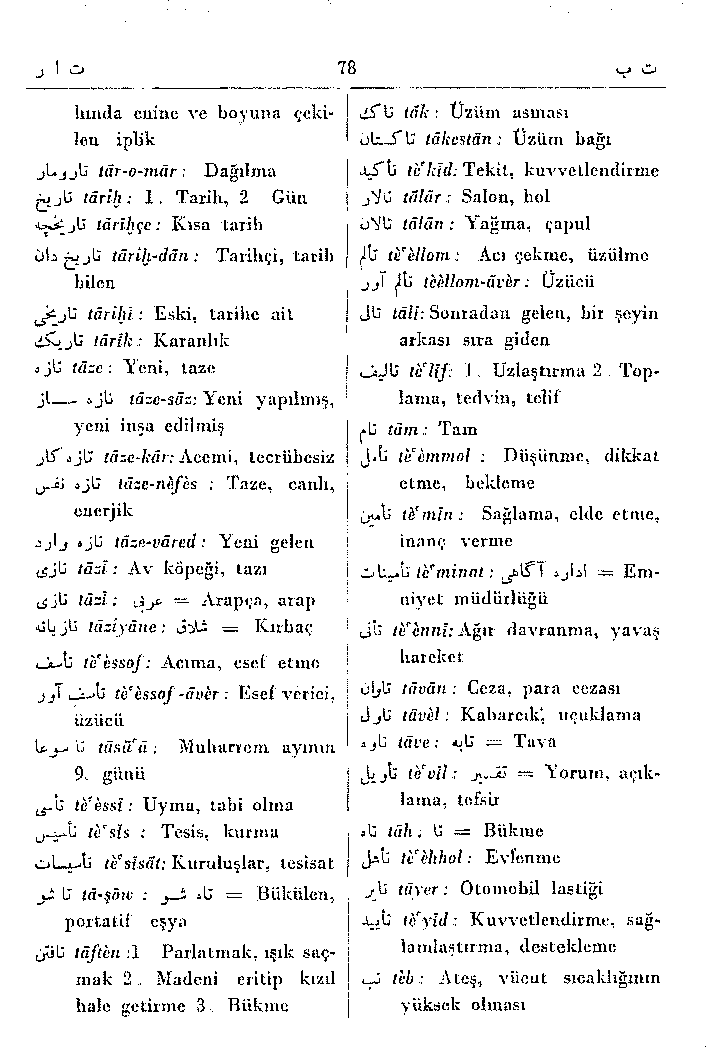 ت ا ر 78 ت ب
hında enine ve boyuna çeki-
len iplik
تارومار tār-o-mār: Dağılma
تاریخ tāriḫ: 1. Tarih, 2 Gün
تاریخچه tāriḫçe: Kısa tarih
تاریخ دان tāriḫ-dān: Tarihçi, tarih
bilen
تاریخی tāriḫi: Eski, tarihe ait
تاریک tārik: Karanlık
تازه tāze: Yeni, taze
تازه ساز tāze-sāz: Yeni yapılmış,
yeni inşa edilmiş
تازه کار tāze-kār: Acemi, tecrübesiz
تازه نفس tāze-nèfès : Taze, canlı,
enerjik
تازه وارد tāze-vāred: Yeni gelen
تازی tāzī: Av köpeği, tazı
تازی tāzī: عربی = Arapça, arap
تازیانه tāziyāne: شلاق = Kırbaç
تأسف tè'èssof: Acıma, esef etme
تأسف آور tè'èssof-āvèr: Esef verici,
üzücü
تاسوعا tāsū'ā: Muharrem ayının
9. günü
تأسی tè'èssī: Uyma, tabi olma
تأسیس tè'sīs : Tesis, kurma
تأسیسات tè'sīsāt: Kuruluşlar, tesisat
تا شو tā-şōw : تاه شو = Bükülen,
portatif eşya
تافتن tāftèn :1 Parlatmak, ışık saç-
mak 2. Madeni eritip kızıl
hale getirme 3. Bükme
تاک tāk: Üzüm asması
تاکستان tākestān: Üzüm bağı
تأکید tè'kīd: Tekit, kuvvetlendirme
تالار tālār: Salon, hol
تالان tālān: Yağma, çapul
تألم tè'èllom: Acı çekme, üzülme
تألم آور tèèllom-āvèr: Üzücü
تال tālī: Sonradan gelen, bir şeyin
arkası sıra giden
تألیف tè'līf: 1. Uzlaştırma 2. Top-
lama, tedvin, telif
تام tām: Tam
تأمل tè'èmmol : Düşünme, dikkat
etme, bekleme
تأمین tè'mīn: Sağlama, elde etme,
inanç verme
تأمینات tè'minat: اداره آگاهی = Em-
niyet müdürlüğü
تأنی tè'ènnī: Ağır davranma, yavaş
hareket
تاوان tāvān: Ceza, para cezası
تاول tāvèl: Kabarcık, uçuklama
تاوه tāve: تابه = Tava
تأویل tè'vīl: تفسیر = Yorum, açık-
lama, tefsir
تاه tāh: تا = Bükme
تأهل tè'èhhol: Evlenme
تایر tāyer: Otomobil lastiği
تأیید tè'yīd: Kuvvetlendirme, sağ-
lamlaştırma, destekleme
تب tèb: Ateş, vücut sıcaklığının
yüksek olması